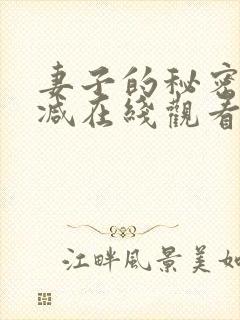 妻子的秘密
减在綫觀看
江畔風景美如